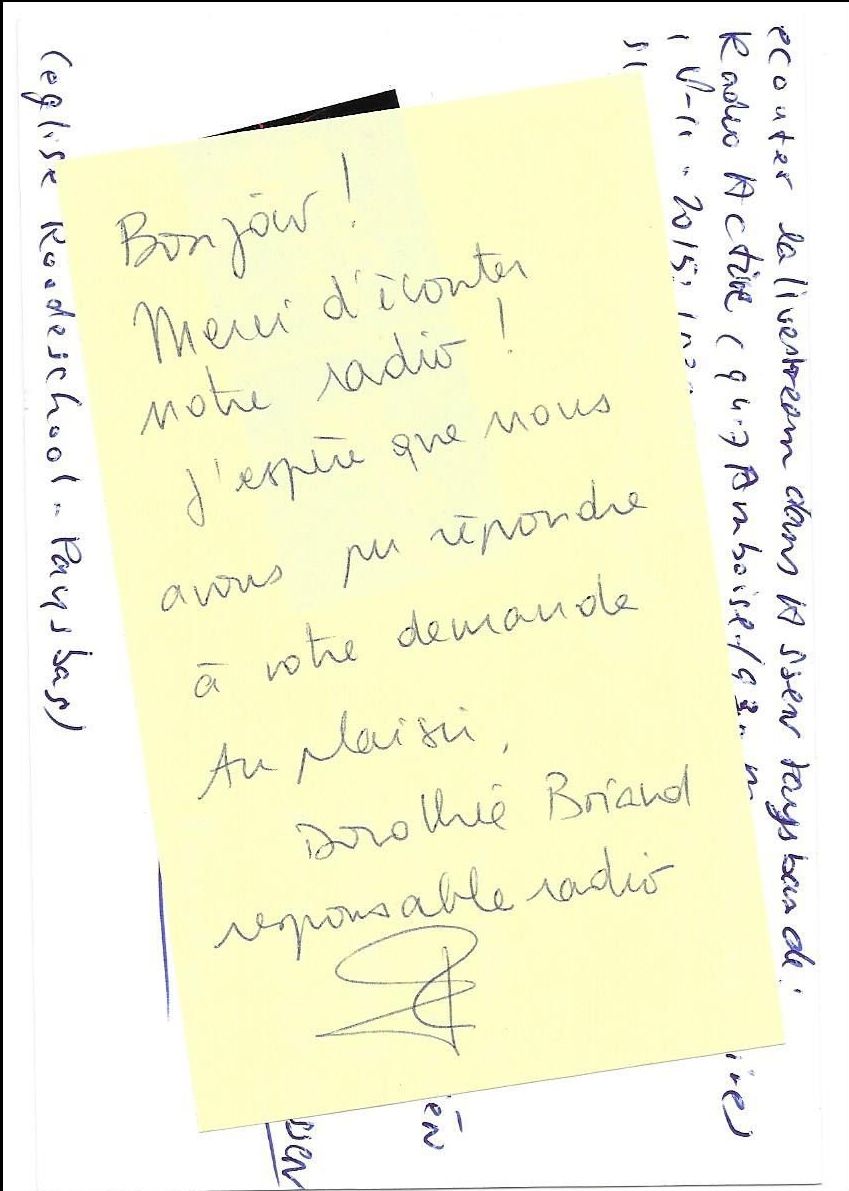 Bonjour !
Merci d'écouter
notre radio !
J'espère que nous
avons pu répondre
à votre demande
Au plaisir,
Dorothée Briand
responsable radio
ecouter la livestream dans Assen Paysbas de:
Radio Active ( Amboise /
2015,
(eglise Roadeschool - Paysbas)